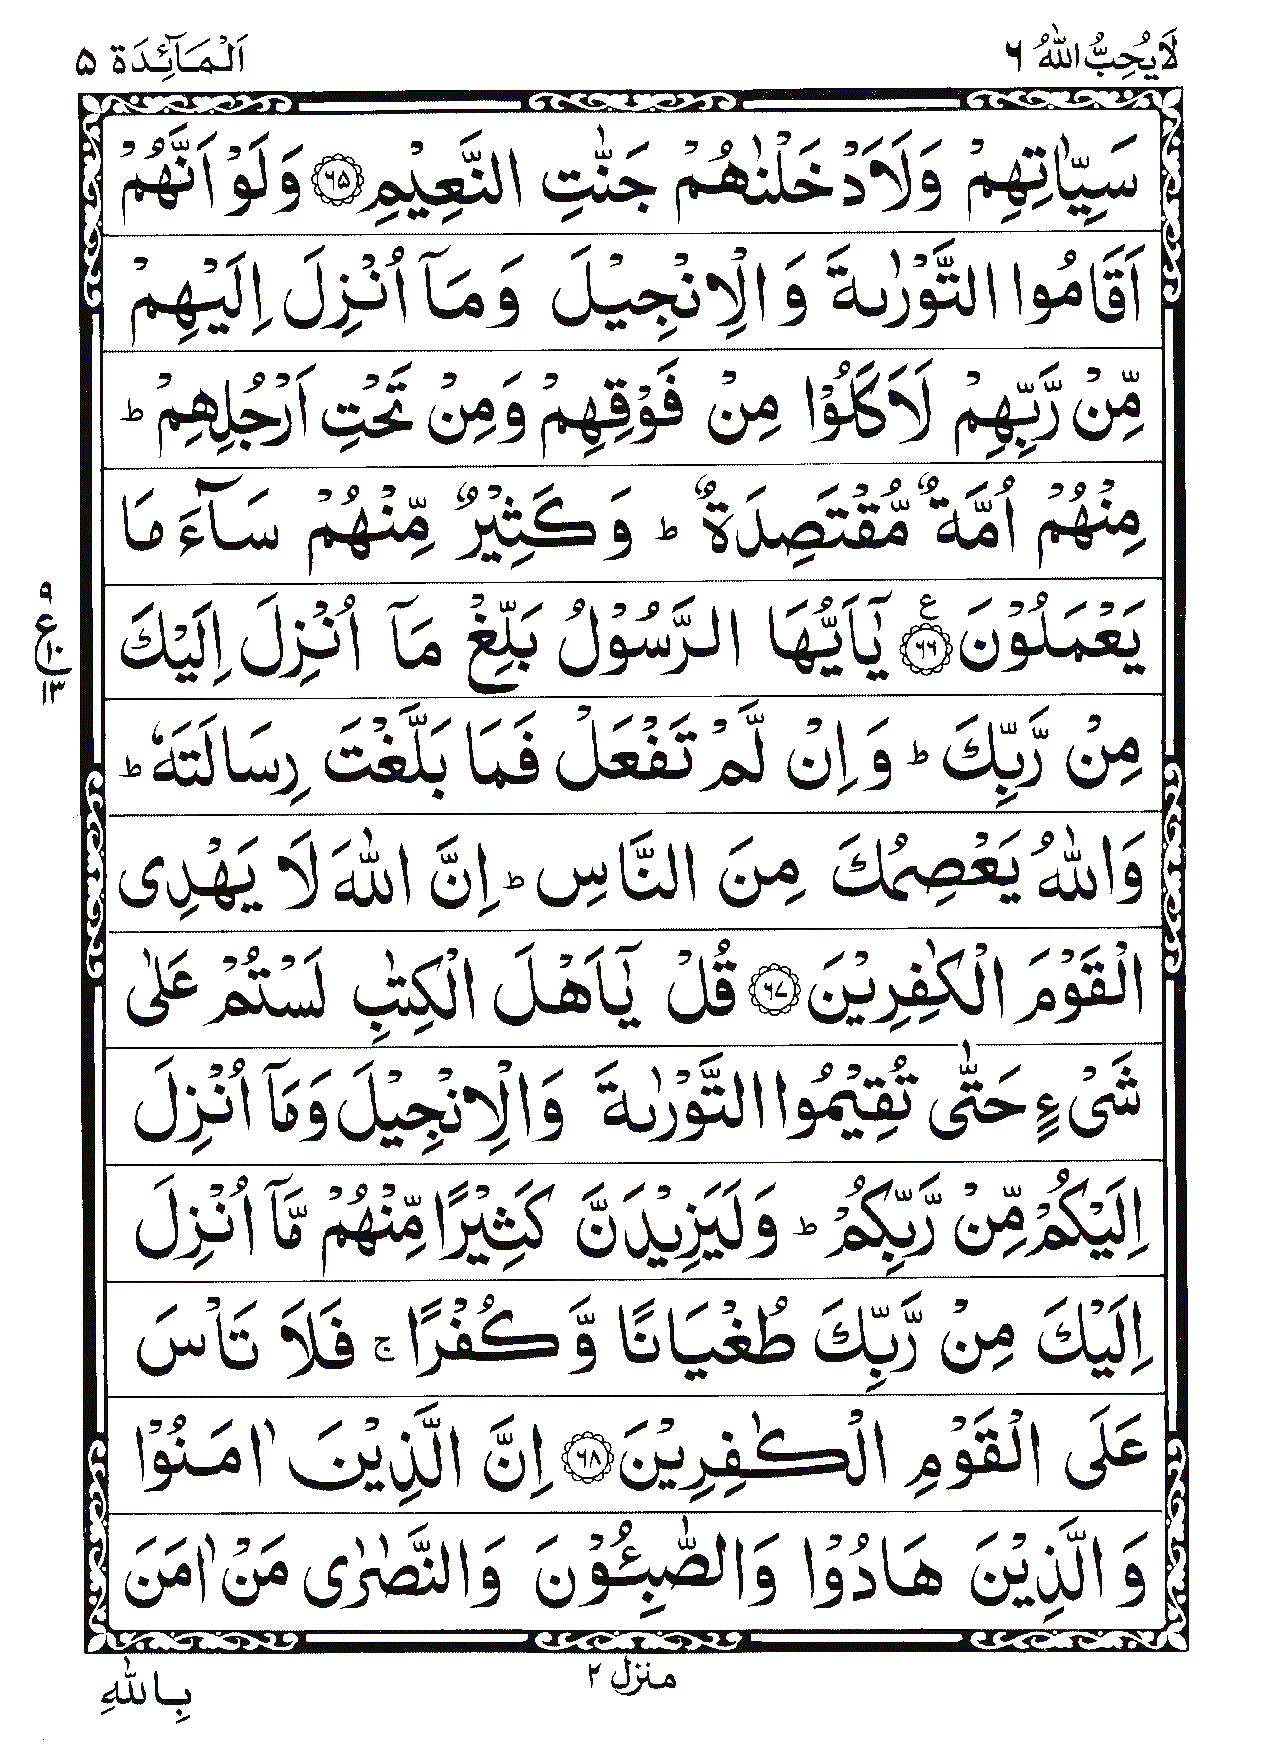 لَا يُحِبُّ اللهُ ٦
اَلْمَآئِدَة ٥
سَيِّاٰتِهِمْ وَلَاَدْخَلْنٰهُمْ جَنّٰتِ النَّعِيْمِ ۝٦٥ وَلَوْ اَنَّهُمْ
اَقَامُوا التَّوْرٰىةَ وَ الْاِنْجِيْلَ وَ مَاۤ اُنْزِلَ اِلَيْهِمْ
مِّنْ رَّبِّهِمْ لَاَكَلُوْا مِنْ فَوْقِهِمْ وَمِنْ تَحْتِ اَرْجُلِهِمْ ؕ
مِنْهُمْ اُمَّةٌ مُّقْتَصِدَةٌ ؕ وَ كَثِيْرٌ مِّنْهُمْ سَآءَ مَا
يَعْمَلُوْنَ ۝٦٦ ع يٰۤاَيُّهَا الرَّسُوْلُ بَلِّغْ مَاۤ اُنْزِلَ اِلَيْكَ
٩
ع
١٠
١٣
مِنْ رَّبِّكَ ؕ وَ اِنْ لَّمْ تَفْعَلْ فَمَا بَلَّغْتَ رِسَالَتَهٗ ؕ
وَاللهُ يَعْصِمُكَ مِنَ النَّاسِ ؕ اِنَّ اللهَ لَا يَهْدِى
الْقَوْمَ الْكٰفِرِيْنَ ۝٦٧ قُلْ يٰۤاَهْلَ الْكِتٰبِ لَسْتُمْ عَلٰى
شَىْءٍ حَتّٰى تُقِيْمُوا التَّوْرٰىةَ وَالْاِنْجِيْلَ وَمَاۤ اُنْزِلَ
اِلَيْكُمْ مِّنْ رَّبِّكُمْ ؕ وَلَيَزِيْدَنَّ كَثِيْرًا مِّنْهُمْ مَّاۤ اُنْزِلَ
اِلَيْكَ مِنْ رَّبِّكَ طُغْيَانًا وَّ كُفْرًا ۚ فَلَا تَاْسَ
عَلَى الْقَوْمِ الْكٰفِرِيْنَ ۝٦٨ اِنَّ الَّذِيْنَ اٰمَنُوْا
وَ الَّذِيْنَ هَادُوْا وَالصّٰبِئُوْنَ وَالنَّصٰرٰى مَنْ اٰمَنَ
منزل ٢
بِاللهِ